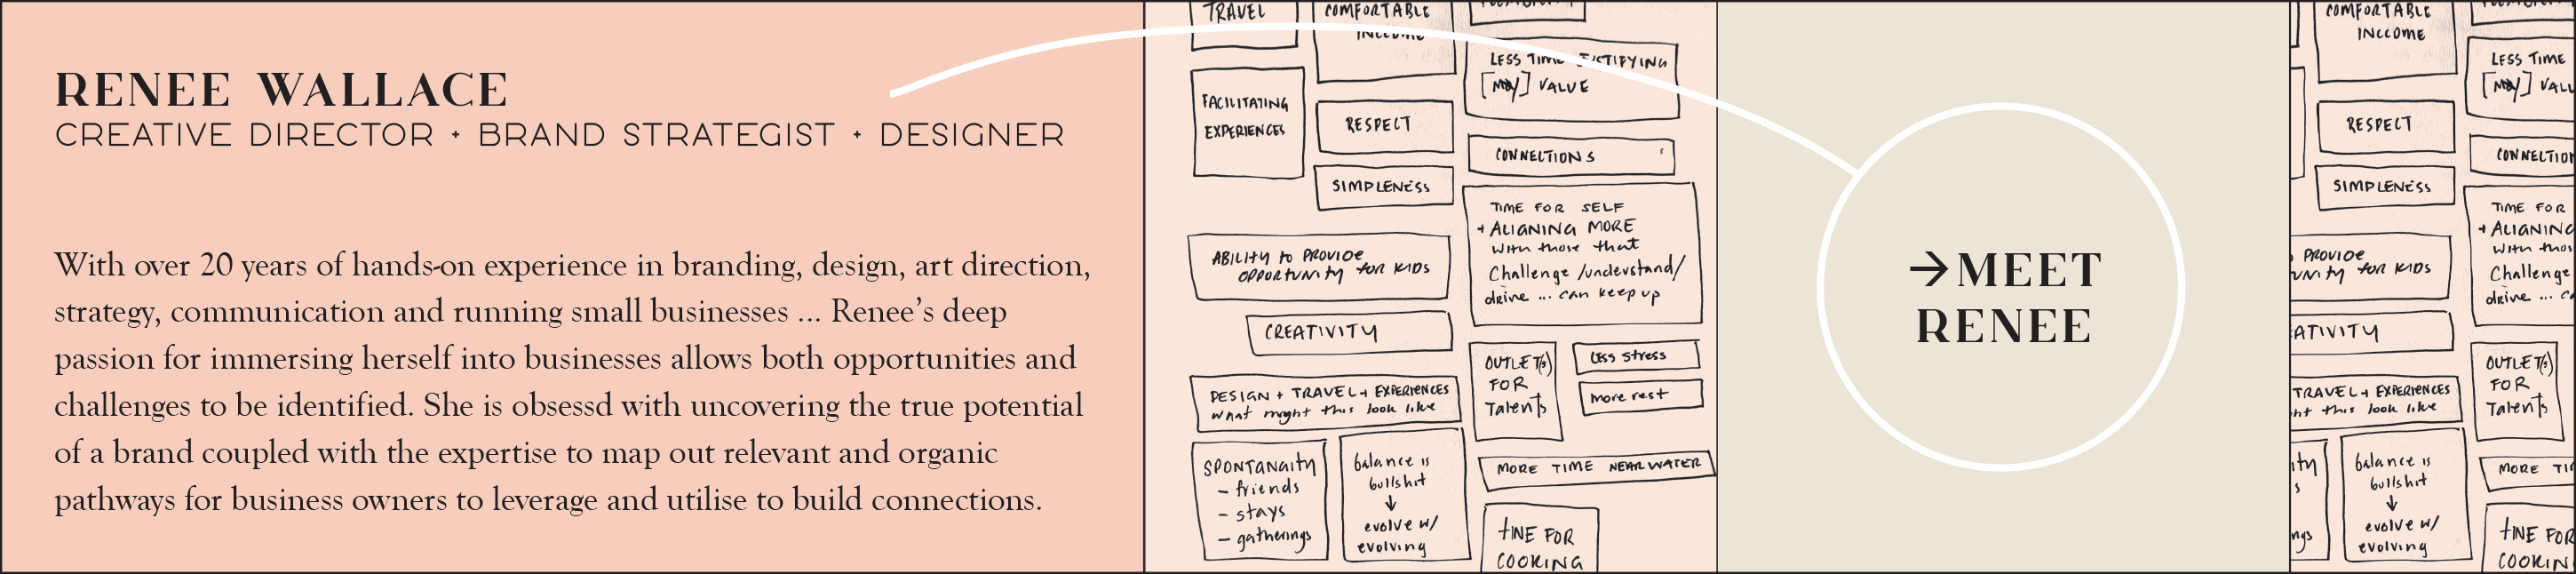 RENEE WALLACE
CREATIVE DIRECTOR + BRAND STRATEGIST + DESIGNER
With over 20 years of hands-on experience in branding, design, art direction,
strategy, communication and running small businesses ... Renee's deep
passion for immersing herself into businesses allows both opportunities and
challenges to be identified. She is obsessd with uncovering the true potential
of a brand coupled with the expertise to map out relevant and organic
pathways for business owners to leverage and utilise to build connections.
TRAVEL
COMFORTABLE
INCOME
FACILITATING
EXPERIENCES
RESPECT
SIMPLENESS
LESS TIME JUSTIFYING
[MY] VALUE
CONNECTIONS
TIME FOR SELF
+ ALIGNING MORE
with those that
Challenge /understand/
drive ... can keep up
ABILITY to PROVIDE
OPPORTUNITY for KIDS
CREATIVITY
OUTLET(s)
FOR
Talents
Less stress
more rest
DESIGN + TRAVEL + EXPERIENCES
what might this look like
SPONTANAITY
- friends
- stays
- gatherings
balance is
bullshit
↓
evolve w/
evolving
MORE TIME NEAR WATER
tINE FOR
COOKING
→MEET
RENEE
COMFORTABLE
INCOME
LESS TIME
[MY] VALU
RESPECT
CONNECTION
SIMPLENESS
TIME FOR
+ ALIGNING
with thos
Challenge
drive ... c
PROVIDE
UNITY for KIDS
EATIVITY
OUTLET(s)
FOR
Talents
TRAVEL + EXPERIENCES
ht this look like
balance is
bullshit
↓
evolve w/
evolving
MORE TI
tINE FOR
COOKIN